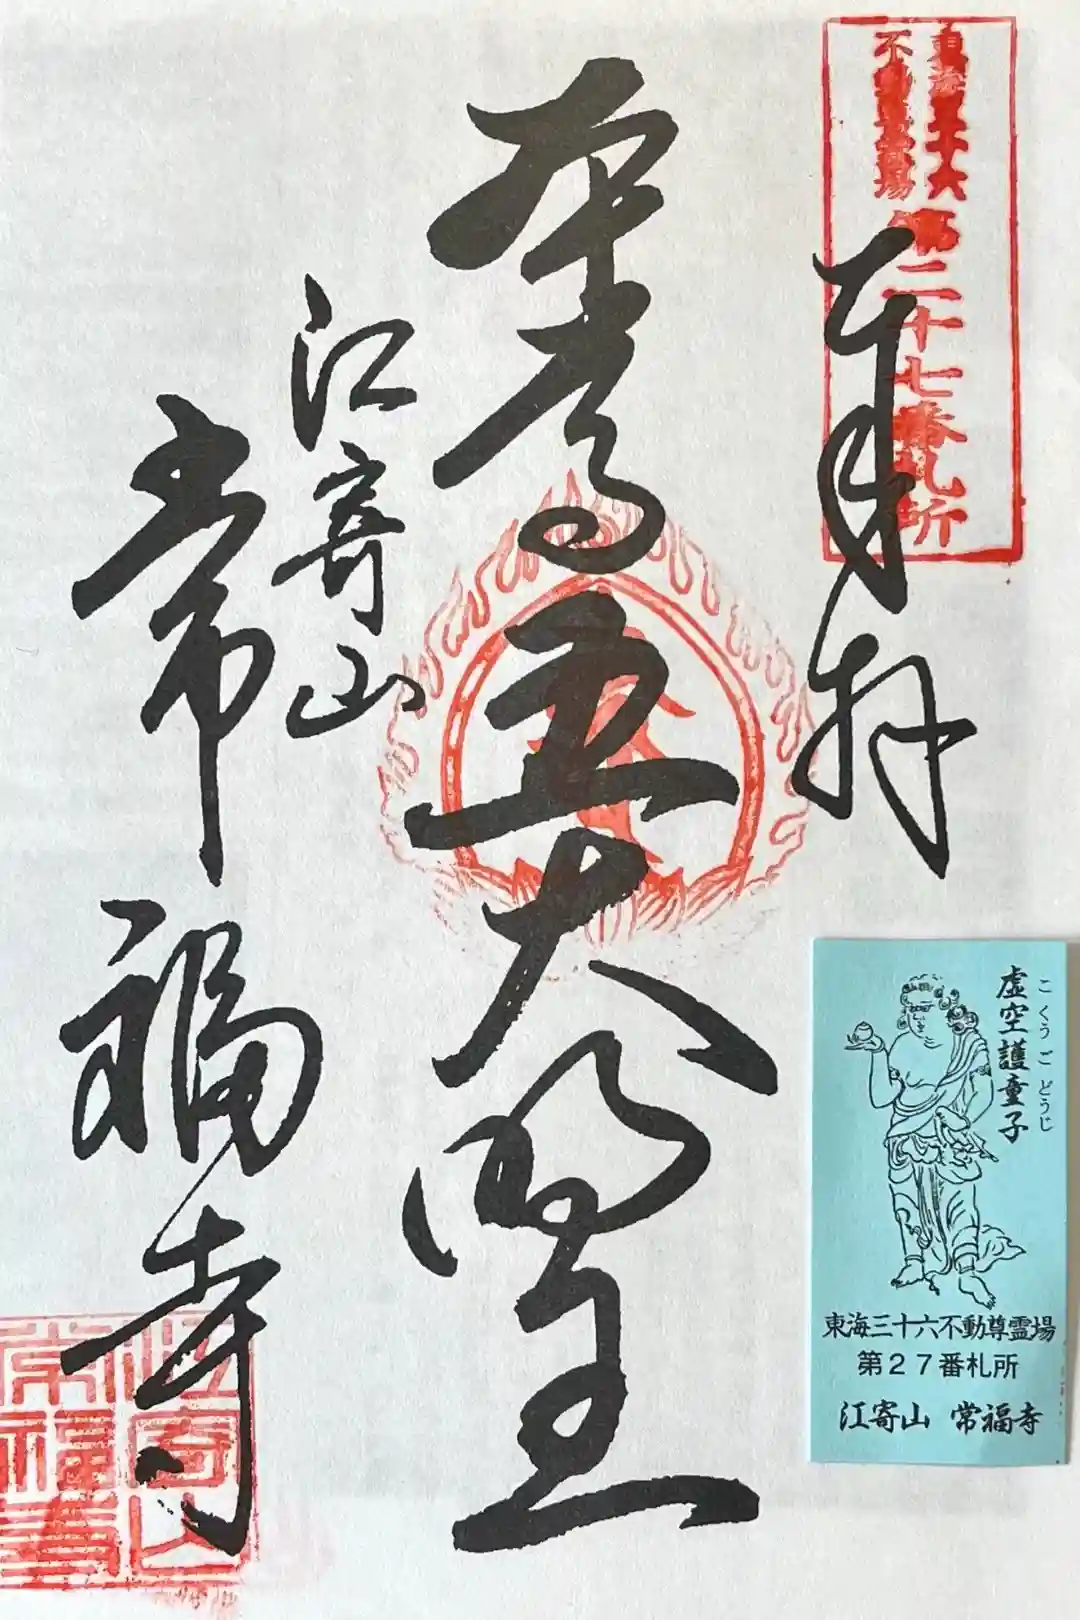 東海三十六
不動尊霊場
第二十七番札所
奉拝
本尊五大明王
江寄山
常福寺
江寄山
常福寺
虚空護童子
こくうごどうじ
東海三十六不動尊霊場
第27番札所
江寄山 常福寺